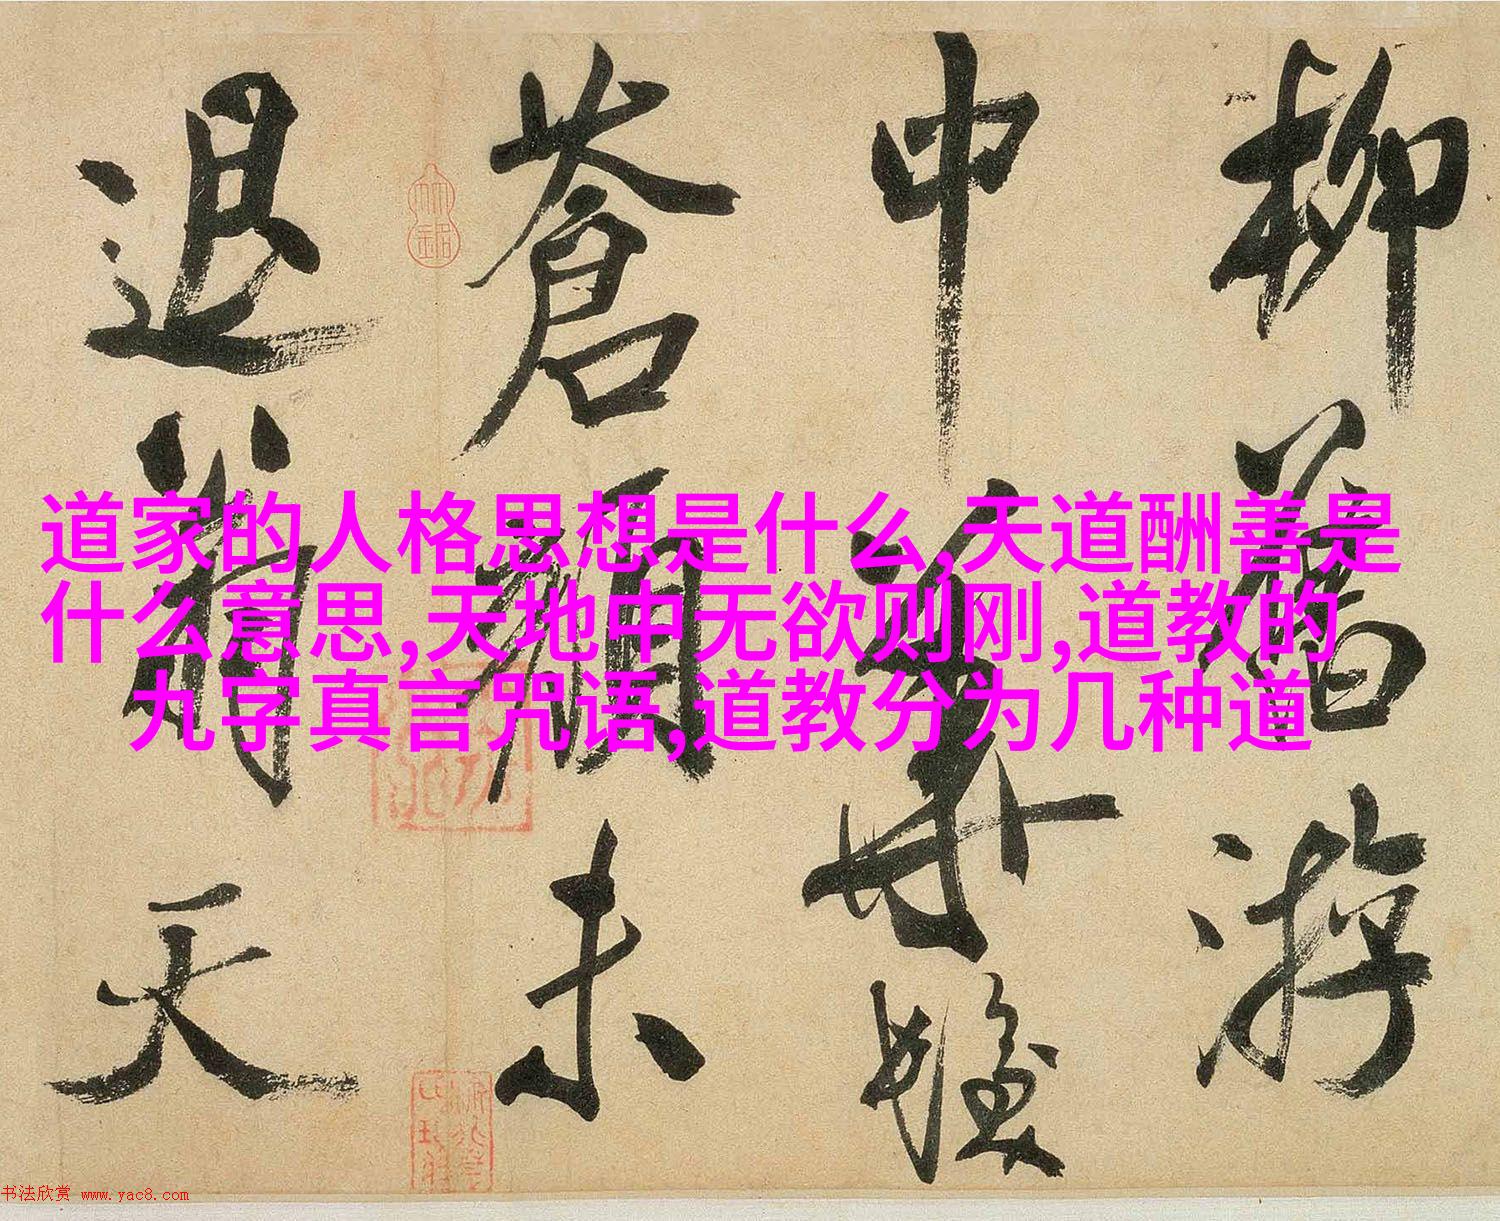 柳舊游
中華髮
蒼顏未
退翁天
道家的人格思想是什么,天道酬善是
什么意思,天地中无欲则刚,道教的
九字真言咒语,道教分为几种道
书法欣赏 www.yac8.com